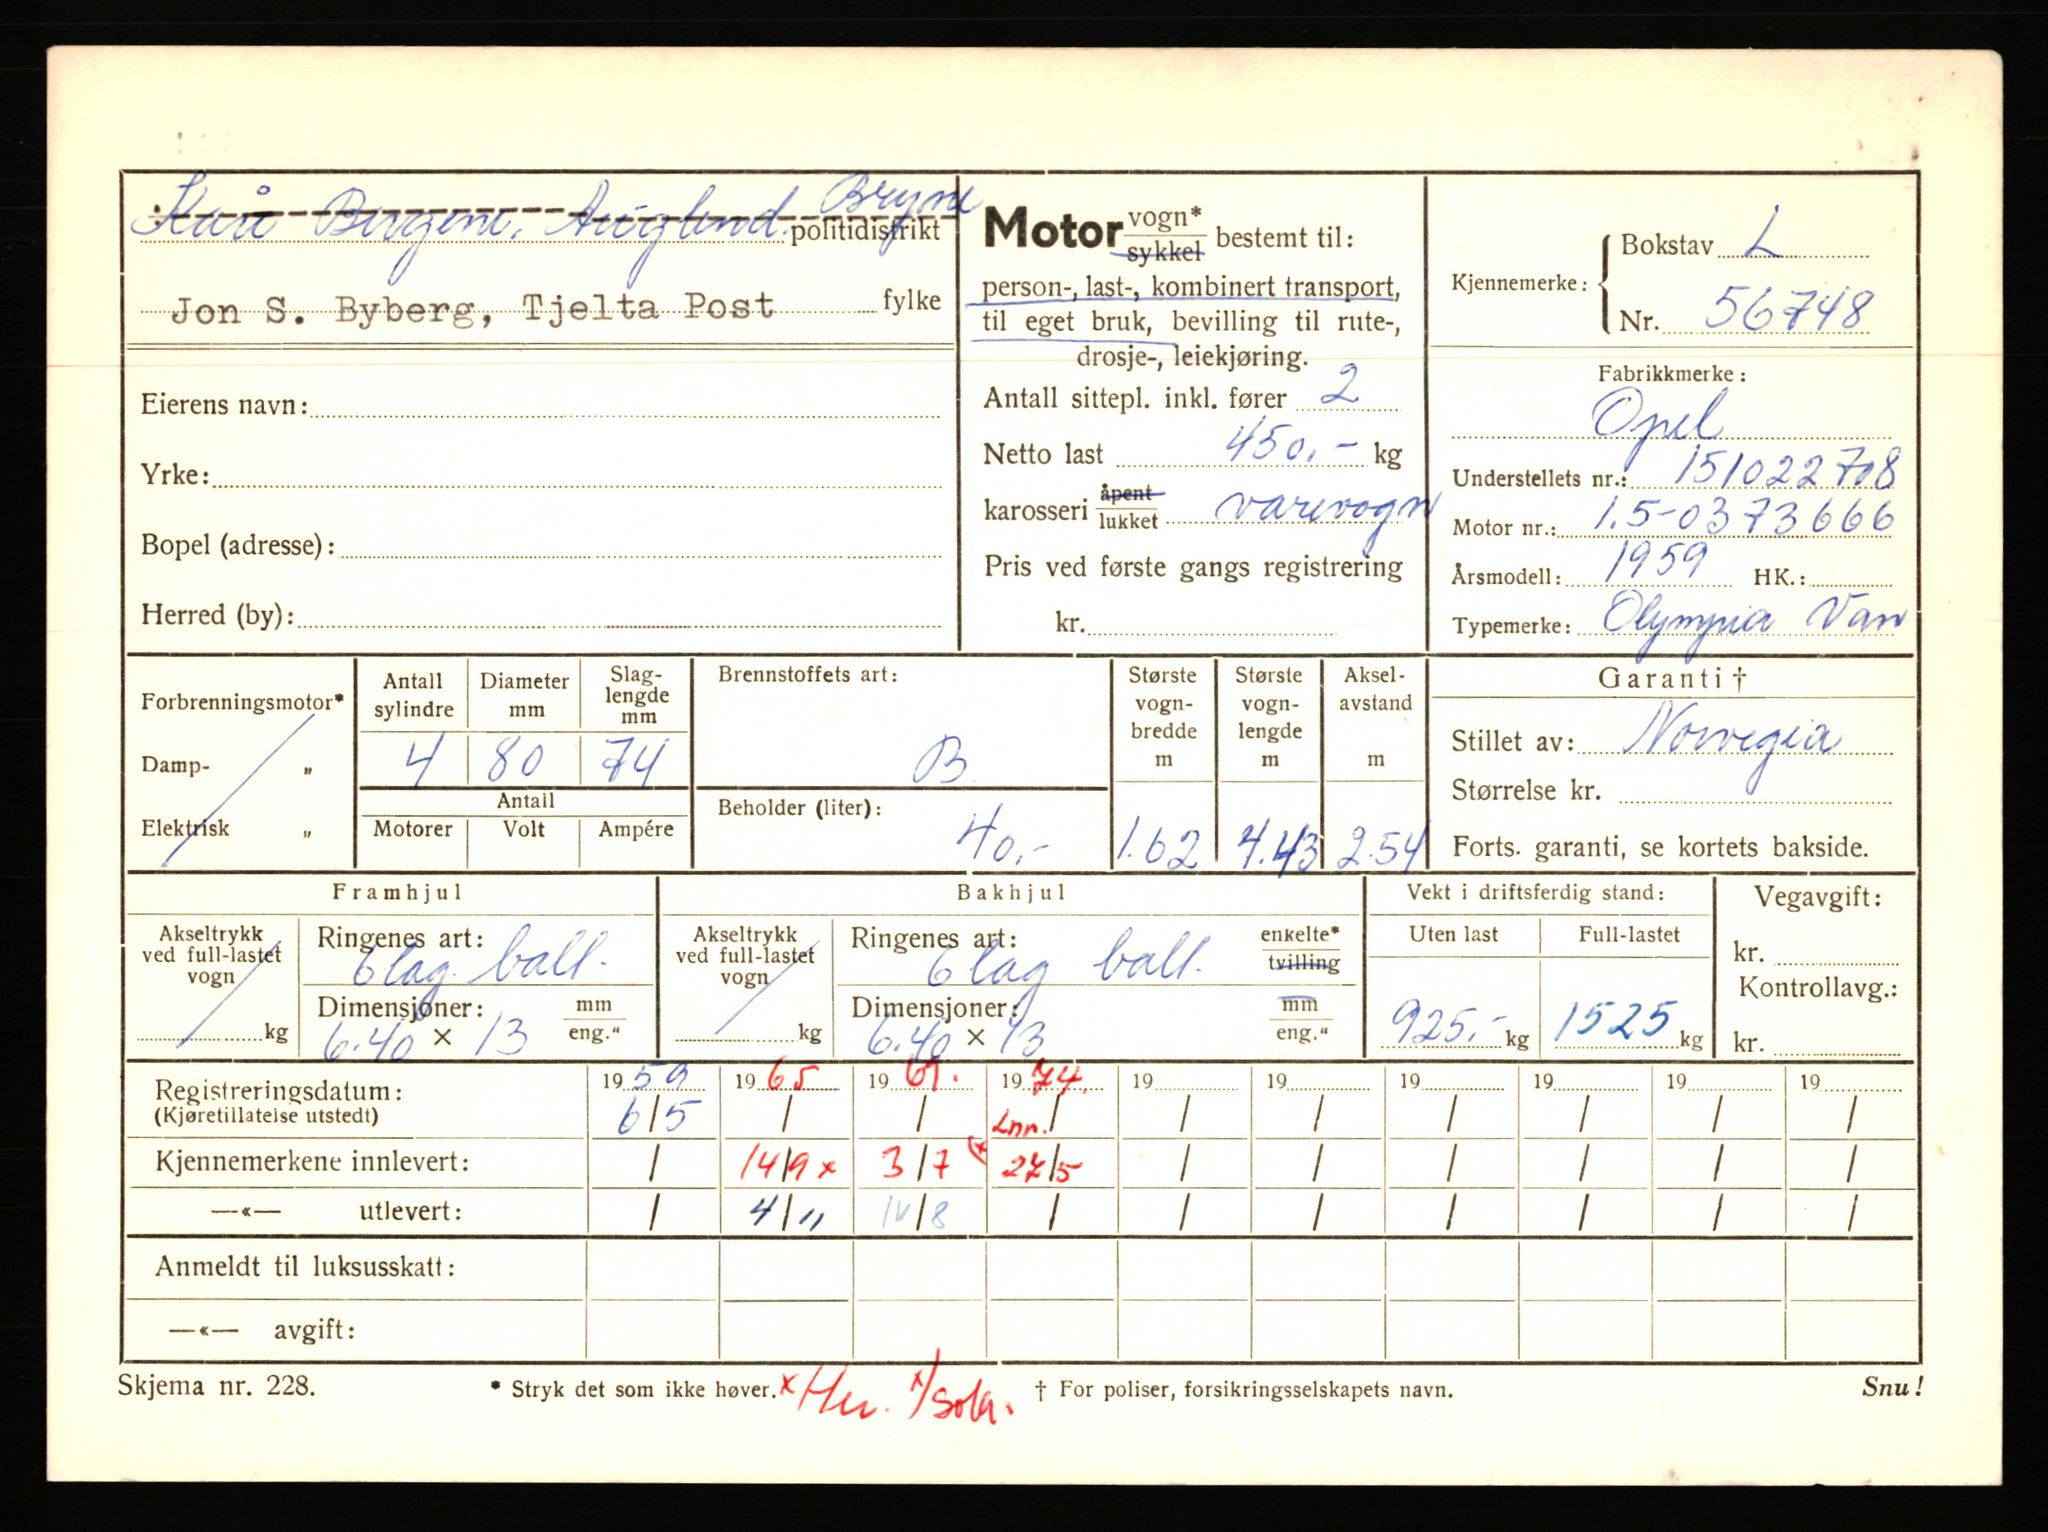 Kåre Bergene, Auglend. Bryne
politidistrikt
Jon S. Byberg, Tjelta Post fylke
Eierens navn:
Yrke:
Bopel (adresse):
Herred (by):
Motor vogn* sykkel bestemt til:
person-, last-, kombinert transport,
til eget bruk, bevilling til rute-,
drosje-, leiekjøring.
Antall sittepl. inkl. fører 2
Netto last 450.- kg
karosseri åpent lukket varevogn
Pris ved første gangs registrering
kr.
Kjennemerke: Bokstav L
Nr. 56748
Fabrikkmerke:
Opel
Understellets nr.: 151022708
Motor nr.: 1.5-0373666
Årsmodell: 1959 HK.:
Typemerke: Olympia Van
Forbrenningsmotor*
Damp- „
Elektrisk „
Antall sylindre
Diameter mm
Slag-lengde mm
4 80 74
Antall
Motorer Volt Ampére
Brennstoffets art:
B
Beholder (liter):
40.-
Største vogn-bredde m
1.62
Største vogn-lengde m
4.43
Aksel-avstand m
2.54
Garanti †
Stillet av: Norvegia
Størrelse kr.
Forts. garanti, se kortets bakside.
Framhjul
Akseltrykk ved full-lastet vogn
kg
Ringenes art:
6 lag ball.
Dimensjoner: mm eng."
6.40 × 13
Bakhjul
Akseltrykk ved full-lastet vogn
kg
Ringenes art: enkelte* tvilling
6 lag ball.
Dimensjoner: mm eng."
6.40 × 13
Vekt i driftsferdig stand:
Uten last Full-lastet
925.- kg 1525 kg
Vegavgift:
kr.
Kontrollavg.:
kr.
Registreringsdatum: 1959 1965 1969. 1974. 19 19 19 19 19 19
(Kjøretillatelse utstedt) 6/5 / / Lnn. / / / / / / /
Kjennemerkene innlevert: / 14/9 x 3/7 (x 27/5 / / / / / /
—«— utlevert: / 4/11 14/8 / / / / / / /
Anmeldt til luksusskatt:
—«— avgift:
Skjema nr. 228.
* Stryk det som ikke høver.
x Hen. x) sola.
† For poliser, forsikringsselskapets navn.
Snu!